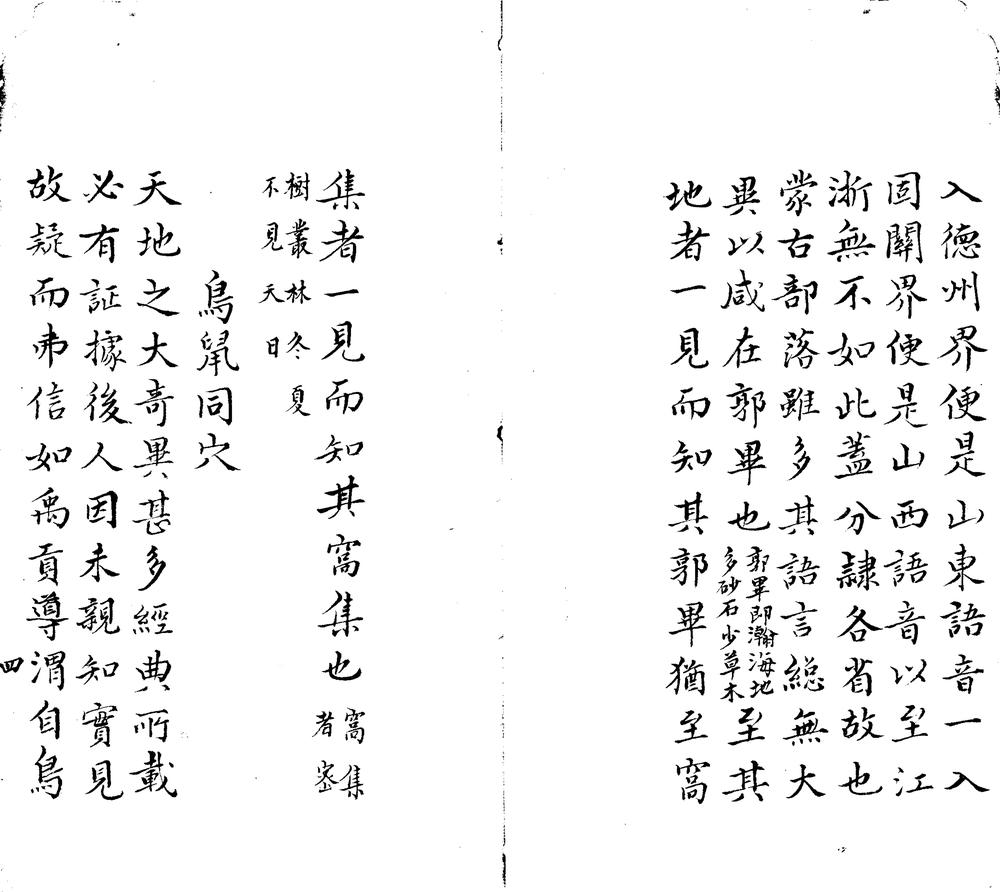 入德州界便是山東語音一入
固關界便是山西語音以至江
浙無不如此蓋分隷各省故也
蒙古部落雖多其語言總無大
異以咸在郭畢也郭畢即瀚海地
多砂石少草木至其
地者一見而知其郭畢猶至窩
集者一見而知其窩集也窩集
者密
樹叢林冬夏
不見天日
鳥鼠同穴
天地之大奇異甚多經典所載
必有証據後人因未親知實見
故疑而弗信如禹貢導渭自鳥
四